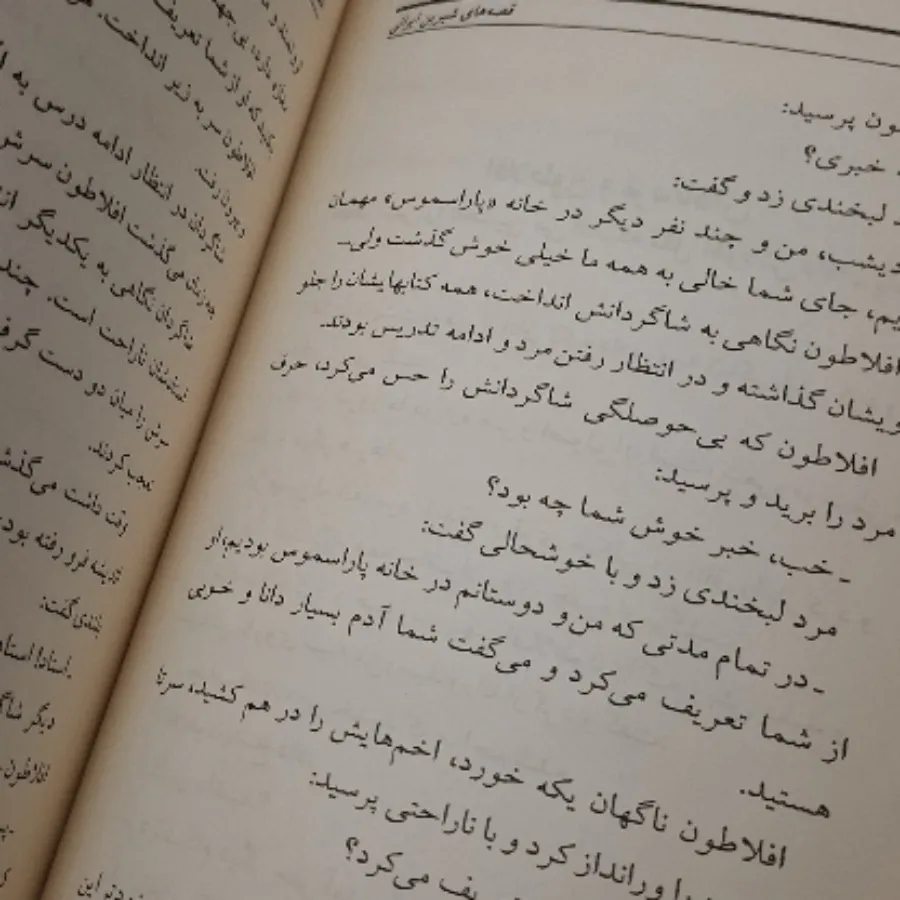 قصه‌های شیرین ایرانی
پرسید:
خبری؟
لبخندی زد و گفت:
دیشب، من و چند نفر دیگر در خانه «پاراسموس» مهمان
جای شما خالی به همه ما خیلی خوش گذشت ولی...
افلاطون نگاهی به شاگردانش انداخت، همه کتابهایشان را جلو
گذاشته و در انتظار رفتن مرد و ادامه تدریس بودند.
افلاطون که بی‌حوصلگی شاگردانش را حس می‌کرد، حرف
مرد را برید و پرسید:
- خب، خبر خوش شما چه بود؟
مرد لبخندی زد و با خوشحالی گفت:
- در تمام مدتی که من و دوستانم در خانه پاراسموس بودیم، او
از شما تعریف می‌کرد و می‌گفت شما آدم بسیار دانا و خوبی
هستید.
افلاطون ناگهان یکه خورد، اخم‌هایش را در هم کشید، سرتا
ورانداز کرد و با ناراحتی پرسید:
می‌کرد؟
این
افلاطون سر به زیر انداخت.
شاگردان در انتظار ادامه درس به
می‌گذشت افلاطون سرش
شاگردان نگاهی به یکدیگر
ناراحت است. چند
سرش را میان دو دست
تعجب کردند.
وقت داشت
فرو رفته بود
گفت:
دیگر
افلاطون